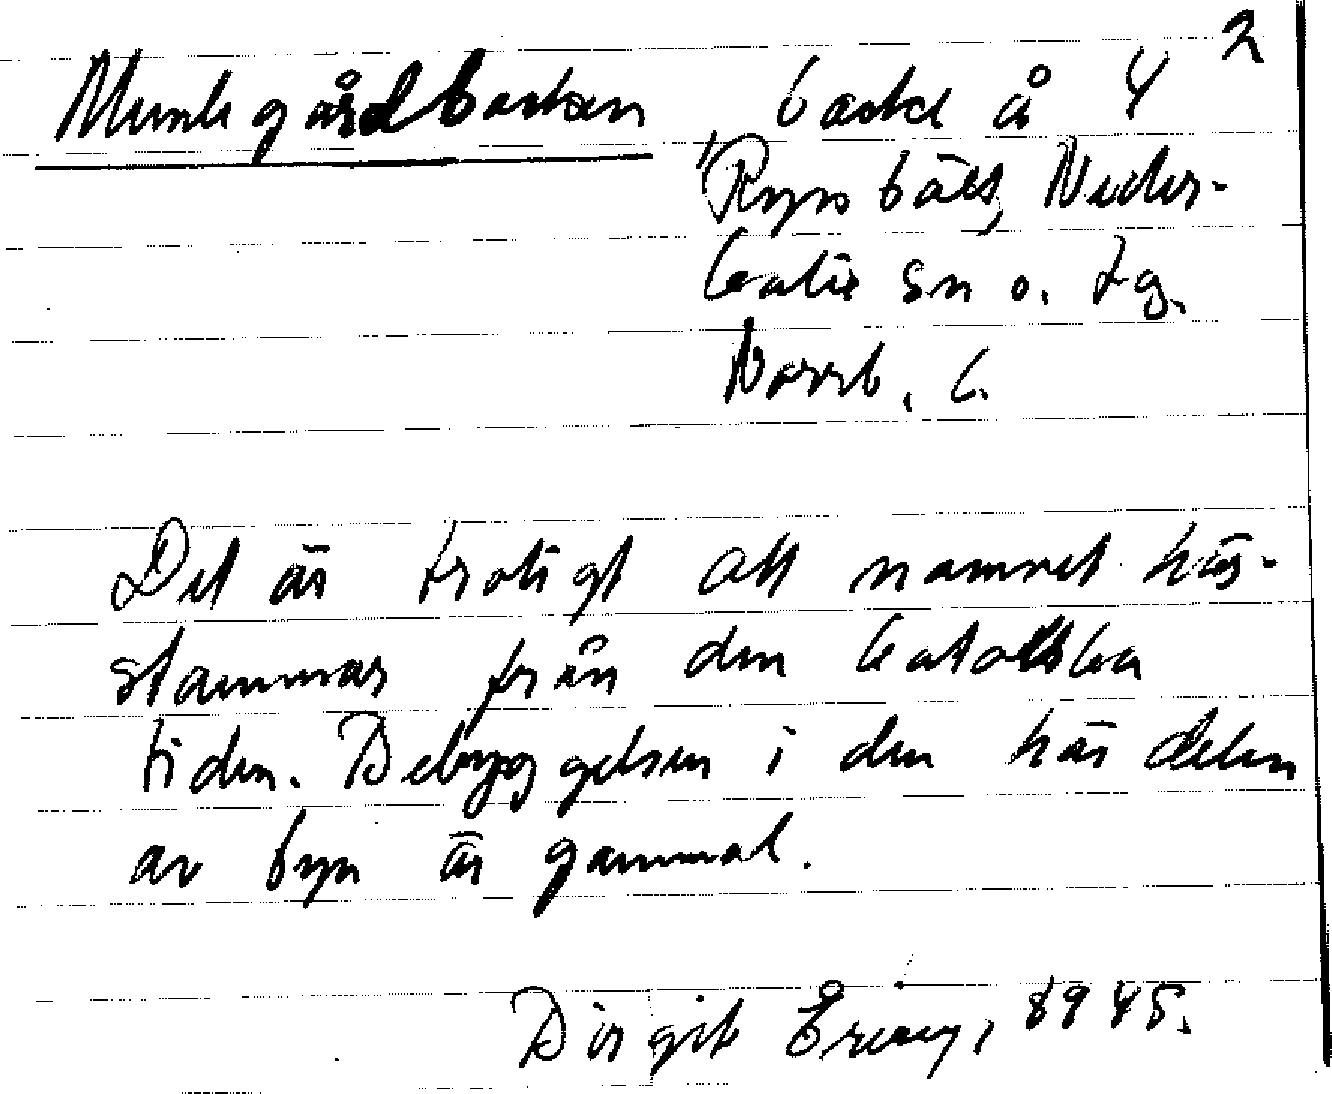 2
Munkgårdbacken backe å 4
Ryssbält, Neder-
kalix sn o. tg.
Norrb. l.
Det är troligt att namnet här-
stammar från den katolska
tiden. Bebyggelsen i den här delen
av byn är gammal.
Birgit 1945.